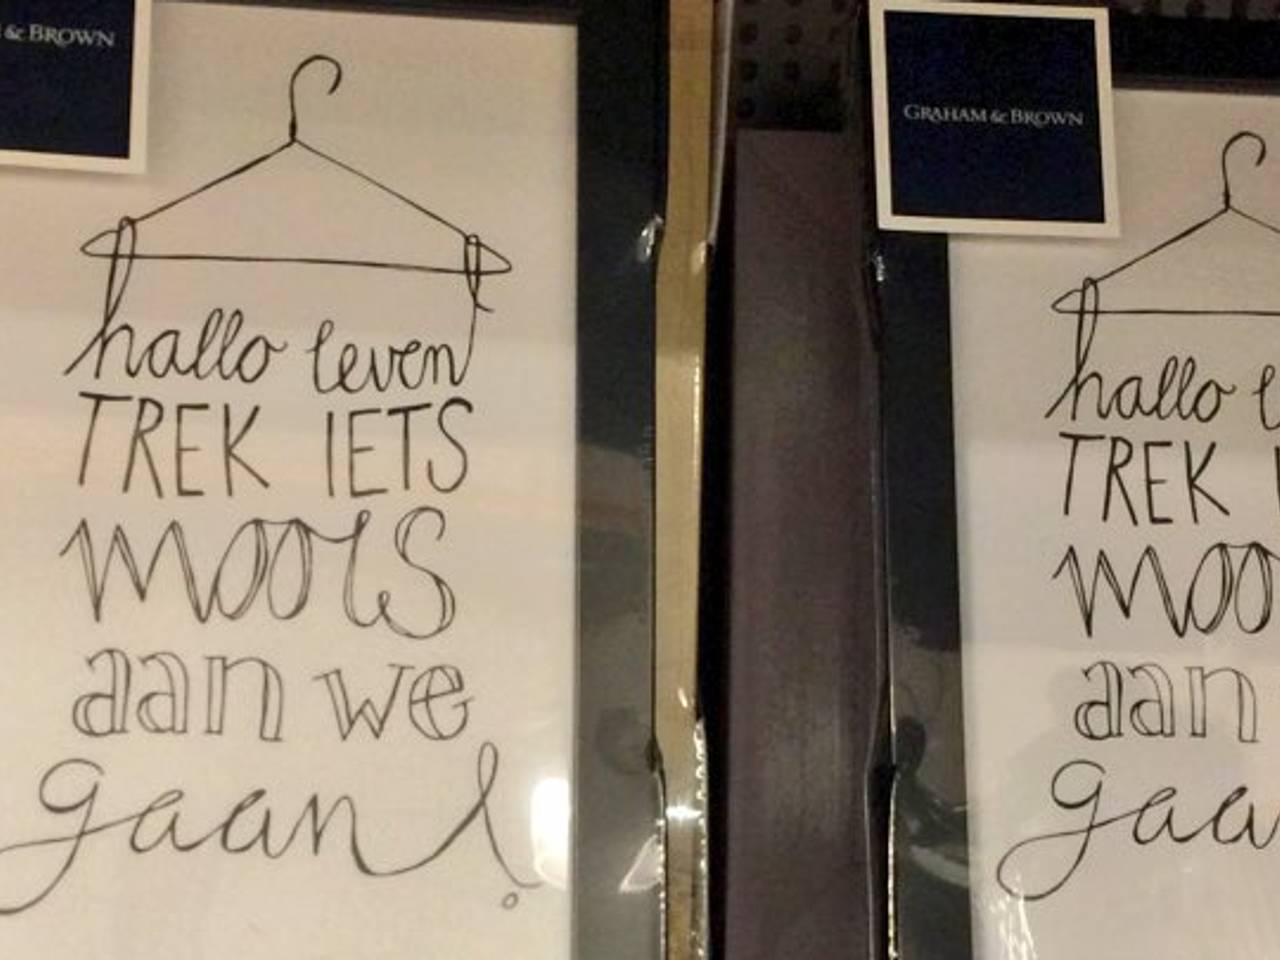 & BROWN
hallo leven
TREK IETS
moois
aan we
gaan!
GRAHAM & BROWN
hallo l
TREK
moo
aan
gaa